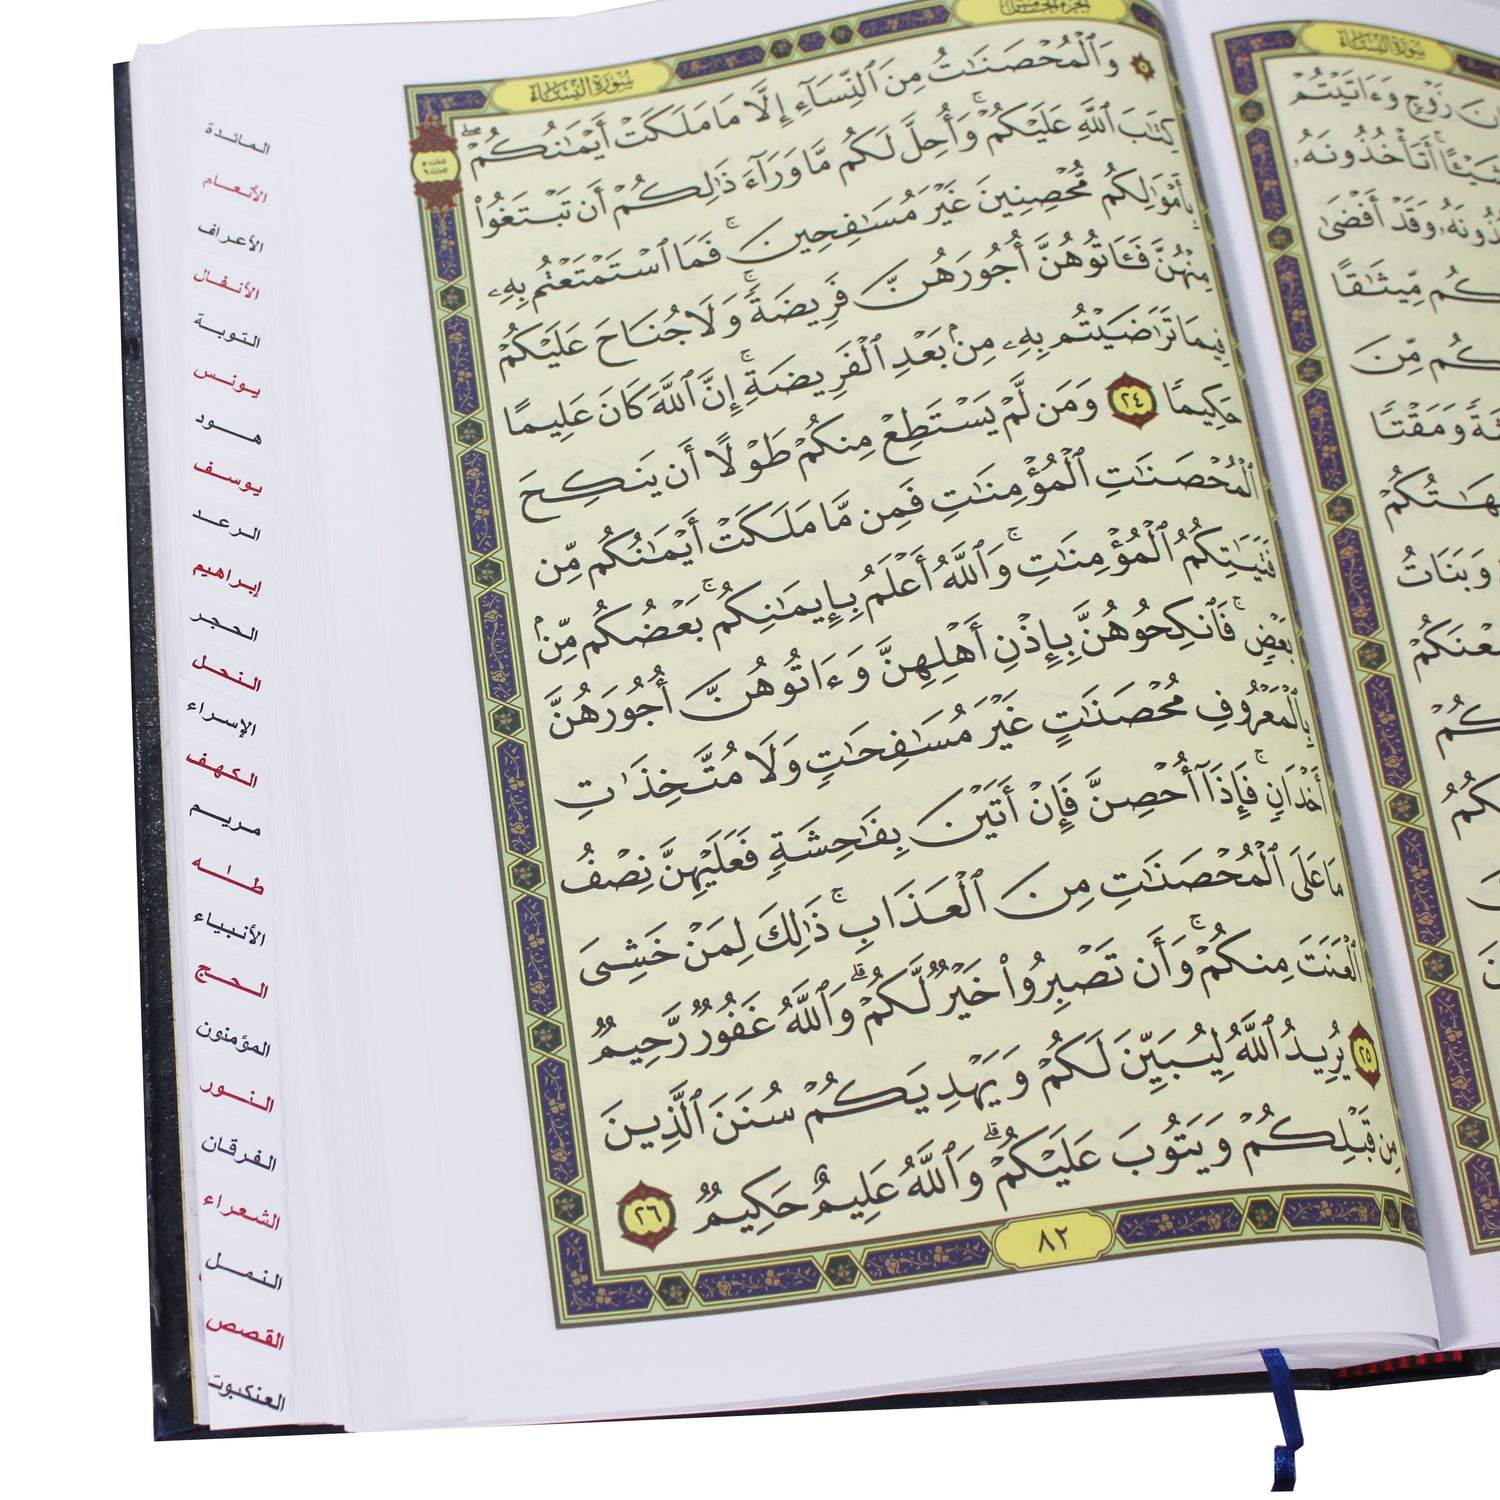 سُورَةُ النِّسَاءِ
وَٱلْمُحْصَنَٰتُ مِنَ ٱلنِّسَآءِ إِلَّا مَا مَلَكَتْ أَيْمَٰنُكُمْ ۖ
كِتَٰبَ ٱللَّهِ عَلَيْكُمْ ۚ وَأُحِلَّ لَكُم مَّا وَرَآءَ ذَٰلِكُمْ أَن تَبْتَغُوا۟
بِأَمْوَٰلِكُم مُّحْصِنِينَ غَيْرَ مُسَٰفِحِينَ ۚ فَمَا ٱسْتَمْتَعْتُم بِهِۦ
مِنْهُنَّ فَـَٔاتُوهُنَّ أُجُورَهُنَّ فَرِيضَةً ۚ وَلَا جُنَاحَ عَلَيْكُمْ
فِيمَا تَرَٰضَيْتُم بِهِۦ مِنۢ بَعْدِ ٱلْفَرِيضَةِ ۚ إِنَّ ٱللَّهَ كَانَ عَلِيمًا
حَكِيمًا ٢٤ وَمَن لَّمْ يَسْتَطِعْ مِنكُمْ طَوْلًا أَن يَنكِحَ
ٱلْمُحْصَنَٰتِ ٱلْمُؤْمِنَٰتِ فَمِن مَّا مَلَكَتْ أَيْمَٰنُكُم مِّن
فَتَيَٰتِكُمُ ٱلْمُؤْمِنَٰتِ ۚ وَٱللَّهُ أَعْلَمُ بِإِيمَٰنِكُم ۚ بَعْضُكُم مِّنۢ
بَعْضٍ ۚ فَٱنكِحُوهُنَّ بِإِذْنِ أَهْلِهِنَّ وَءَاتُوهُنَّ أُجُورَهُنَّ
بِٱلْمَعْرُوفِ مُحْصَنَٰتٍ غَيْرَ مُسَٰفِحَٰتٍ وَلَا مُتَّخِذَٰتِ
أَخْدَانٍ ۚ فَإِذَآ أُحْصِنَّ فَإِنْ أَتَيْنَ بِفَٰحِشَةٍ فَعَلَيْهِنَّ نِصْفُ
مَا عَلَى ٱلْمُحْصَنَٰتِ مِنَ ٱلْعَذَابِ ۚ ذَٰلِكَ لِمَنْ خَشِىَ
ٱلْعَنَتَ مِنكُمْ ۚ وَأَن تَصْبِرُوا۟ خَيْرٌ لَّكُمْ ۗ وَٱللَّهُ غَفُورٌ رَّحِيمٌ
٢٥ يُرِيدُ ٱللَّهُ لِيُبَيِّنَ لَكُمْ وَيَهْدِيَكُمْ سُنَنَ ٱلَّذِينَ
مِن قَبْلِكُمْ وَيَتُوبَ عَلَيْكُمْ ۗ وَٱللَّهُ عَلِيمٌ حَكِيمٌ ٢٦
٨٢
سُورَةُ النِّسَاءِ
زَوْجٍ وَءَاتَيْتُمْ
أَتَأْخُذُونَهُۥ
وَقَدْ أَفْضَىٰ
مِّيثَٰقًا
مِّنَ
وَمَقْتًا
وَبَنَاتُ
المائدة
الأنعام
الأعراف
الأنفال
التوبة
يونس
هود
يوسف
الرعد
إبراهيم
الحجر
النحل
الإسراء
الكهف
مريم
طه
الأنبياء
الحج
المؤمنون
النور
الفرقان
الشعراء
النمل
القصص
العنكبوت